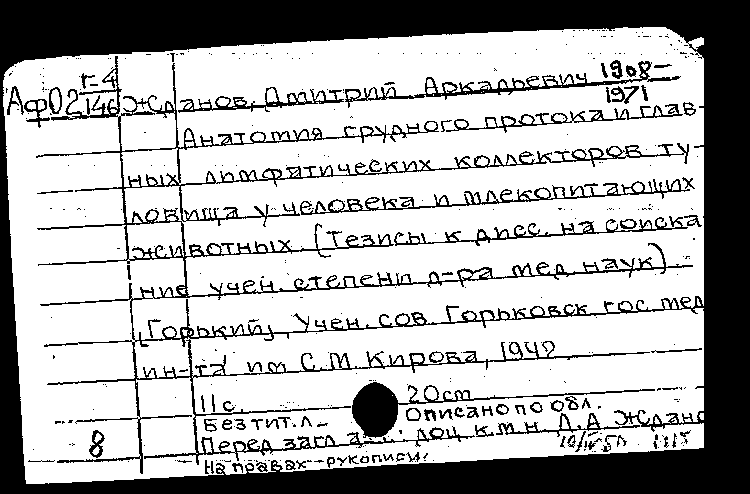 Аф02 г-4/146 Жданов, Дмитрий Аркадьевич 1908–
1971
Анатомия грудного протока и глав-
ных лимфатических коллекторов ту-
ловища у человека и млекопитающих
животных. (Тезисы к дисс. на соиска
ние учен. степени д-ра мед. наук). -
[Горький], Учен. сов. Горьковск гос. мед
ин-та им С. М. Кирова, 1942
11 с. 20 cm
Без тит. л. Описано по обл.
8 Перед загл доц. к.м.н. Жданов
На правах рукописи.